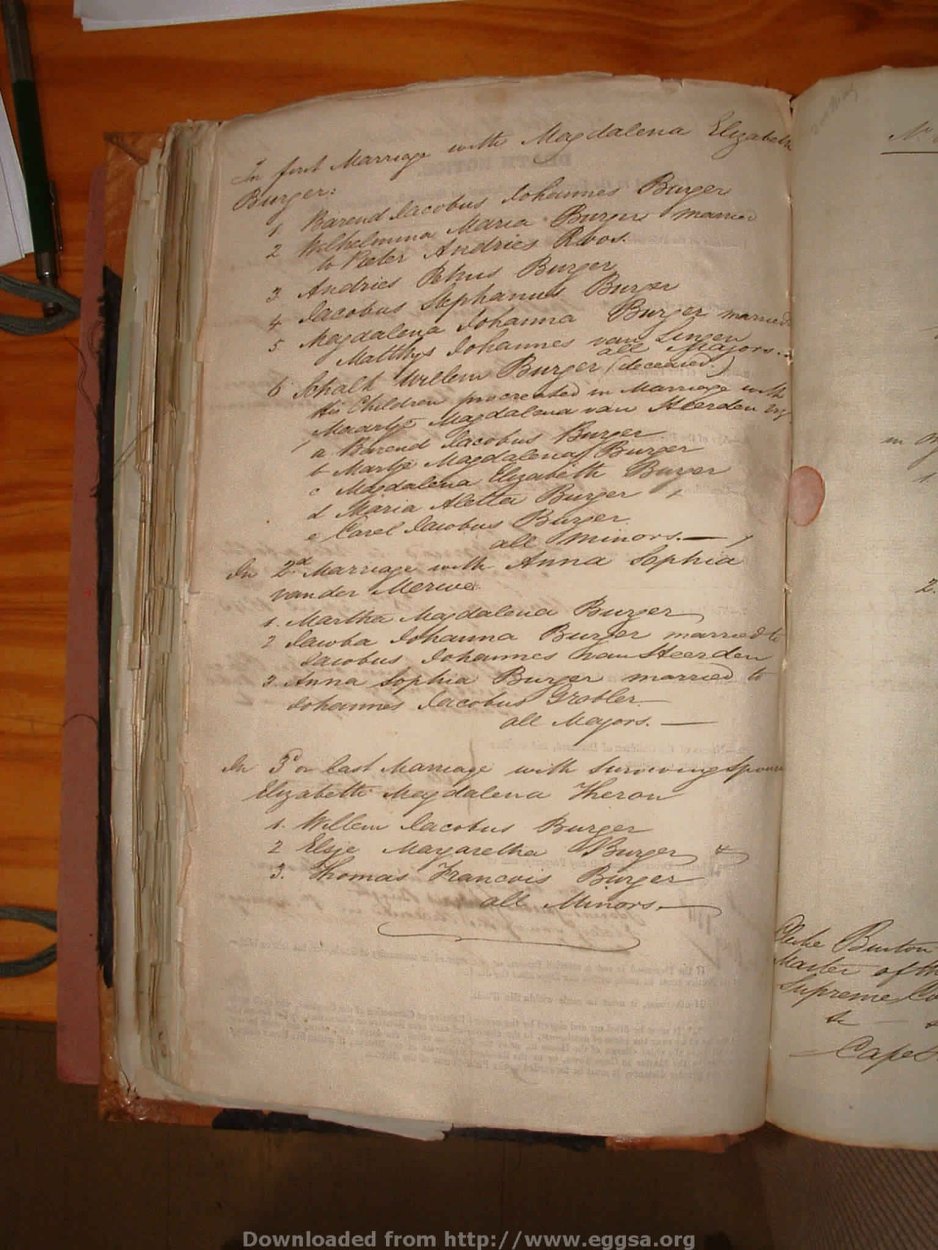 In first Marriage with Magdalena Elizabeth
Burger:
1. Barend Jacobus Johannes Burger
2 Wilhelmina Maria Burger married
to Pieter Andries Roos.
3. Andries Petrus Burger
4. Jacobus Stephanus Burger
5 Magdalena Johanna Burger married
Matthys Johannes van Lingen
all Majors.
6 Schalk Willem Burger (deceased)
His Children procreated in Marriage with
Maartje Magdalena van Heerden
a Barend Jacobus Burger
b Martje Magdalena Burger
c Magdalena Elizabeth Burger
d Maria Aletta Burger
e Carel Jacobus Burger
all Minors.
In 2d Marriage with Anna Sophia
van der Merwe
1. Martha Magdalena Burger
2 Jacoba Johanna Burger married to
Jacobus Johannes van Heerden
3. Anna Sophia Burger married to
Johannes Jacobus Grobler
all Majors.
In 3d or last Marriage with surviving Spouse
Elizabeth Magdalena Theron
1. Willem Jacobus Burger
2 Elsje Margaretha Burger &
3. Thomas Francois Burger
all Minors.
Clerke Burton
Master of the
Supreme Co
&c
Cape
2.
Downloaded from http://www.eggsa.org